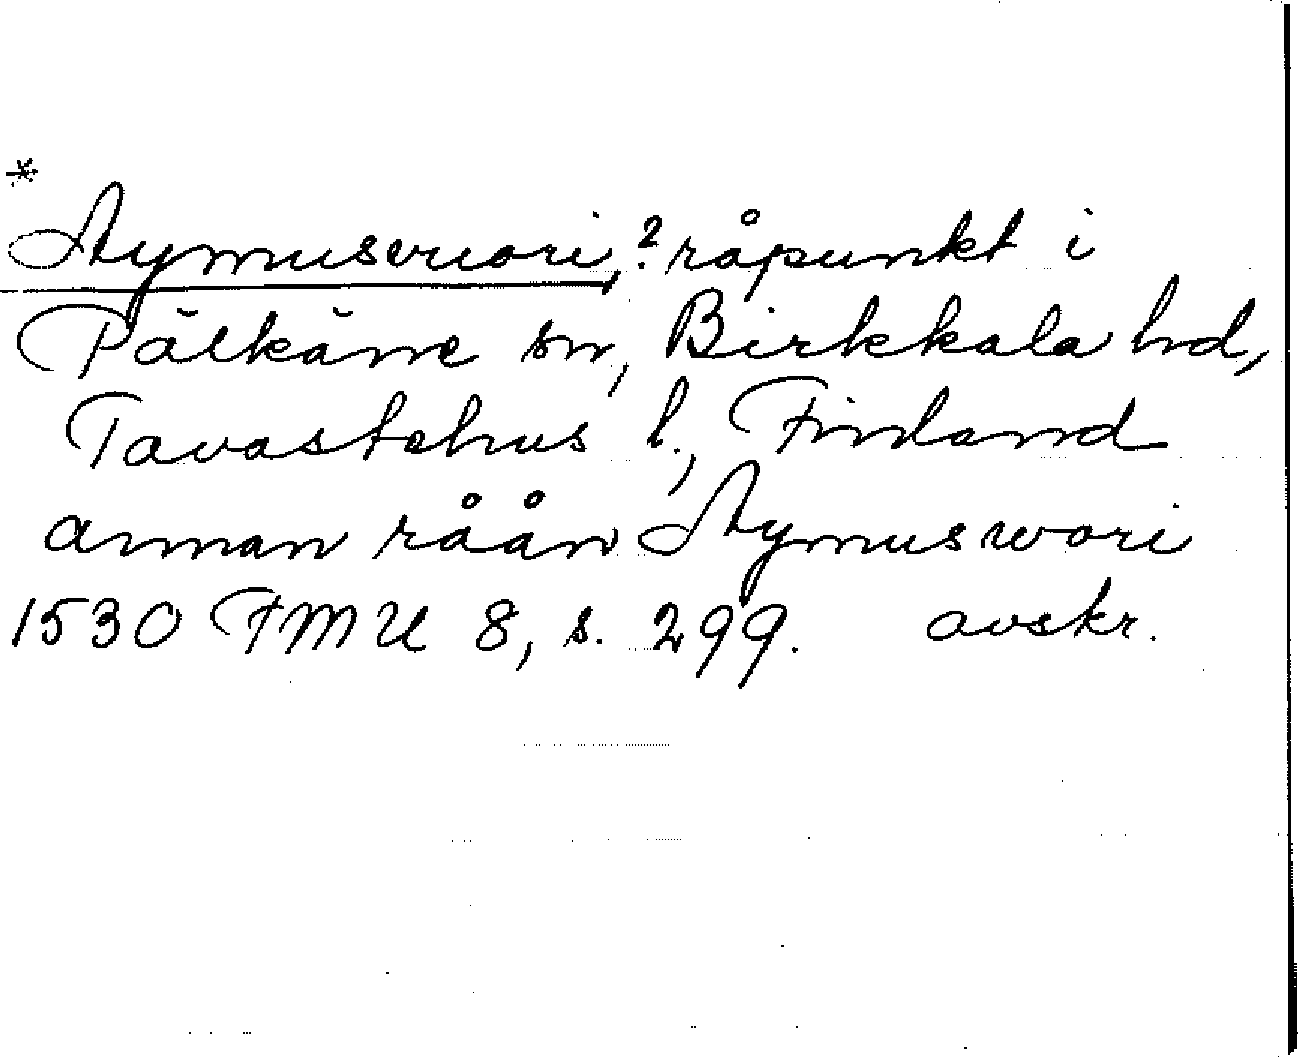 *
Aymuseuori,? råpunkt i
Pälkäne sn, Birkkala hd,
Tavastehus l., Finland
annan råån Aymuswori
1530 FMU 8, s. 299. avskr.